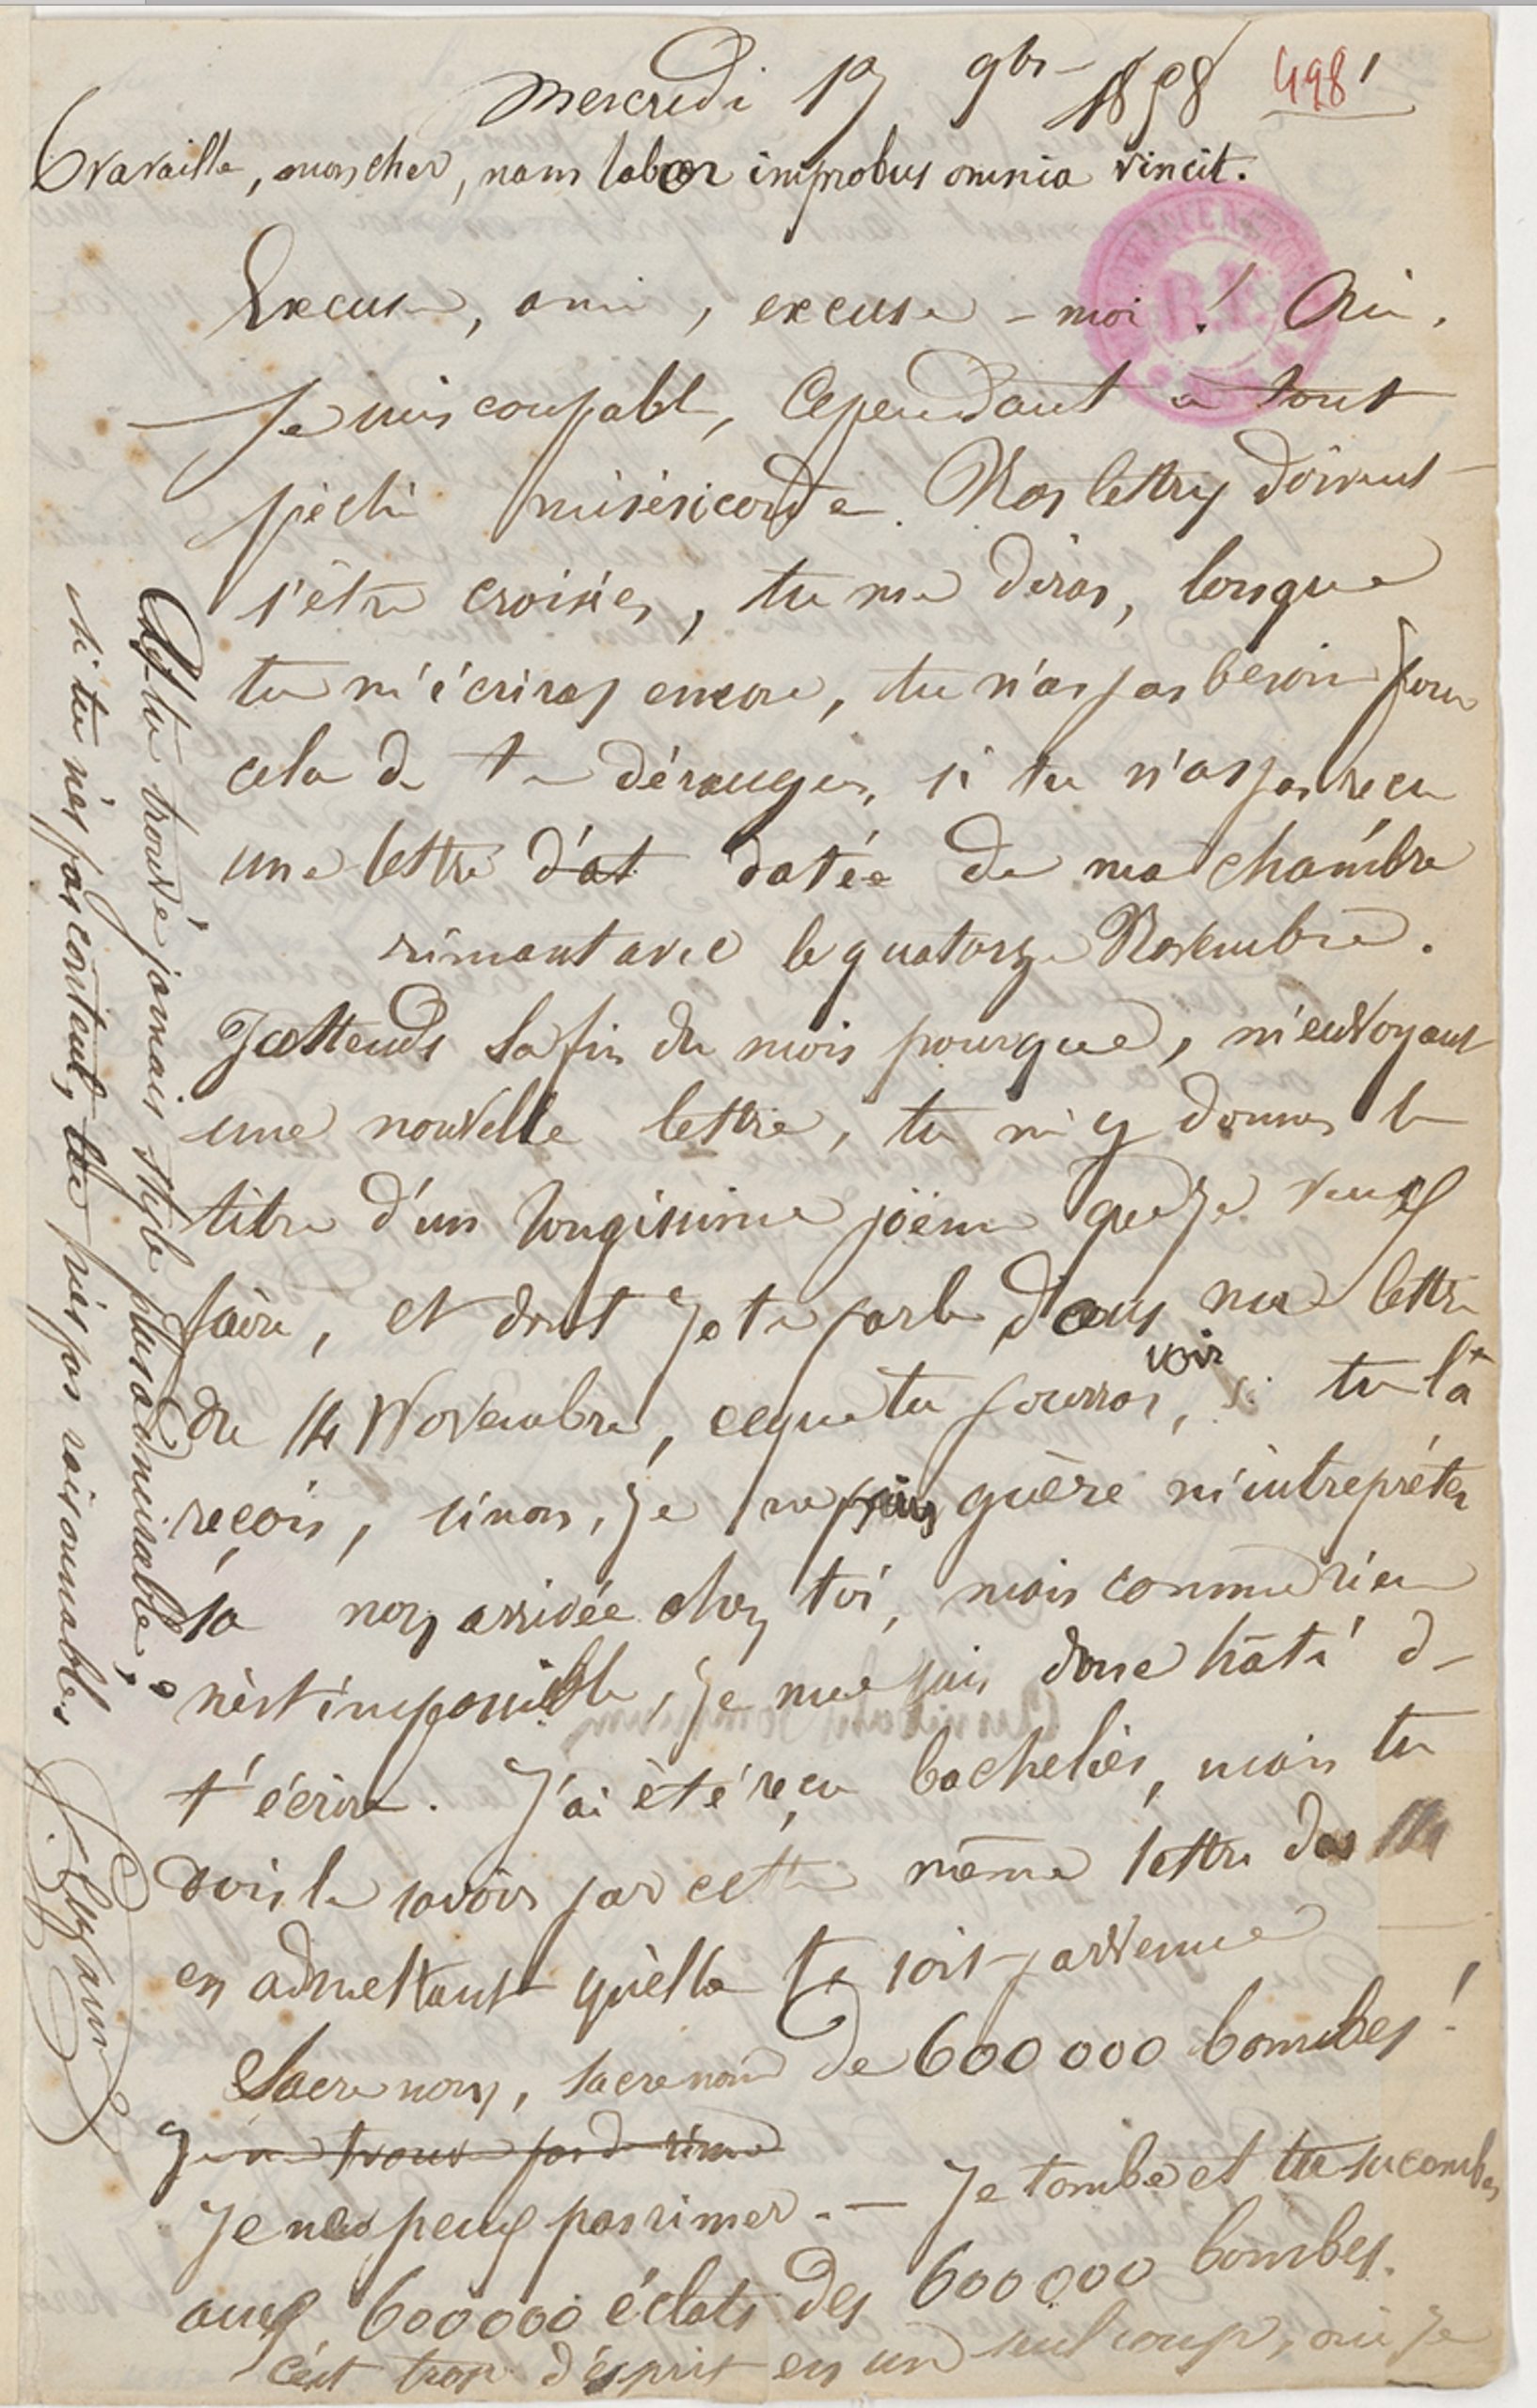 Mercredi 17 9bre 1858 498 1
Travaille, mon cher, nam labor improbus omnia vincit.
Excuse, ami, excuse-moi ! Oui,
je suis coupable, Cependant a tout
péché miséricorde. Nos lettres doivent
s'être croisées, tu me diras, lorsque
tu m'écriras encore, tu n'as pas besoin pour
cela de te déranger, si tu n'as pas recu
une lettre d'at datée de ma chambre
rimant avec le quatorze Novembre.
J'attends la fin du mois pourque, m'envoyant
une nouvelle lettre, tu m'y donnes le
titre d'un longissime poëme que je veux
faire, et dont je te parle dans ma lettre
du 14 Novembre, ce que tu pourras voir, si tu la
reçois, sinon, je ne puis guère m'intrepréter
sa non arrivée chez toi, mais comme rien
n'est impossible, je me suis donc hâté de
t'écrire. J'ai été reçu bachelier, mais tu
dois le savoir par cette même lettre des
en admettant qu'elle te soit parvenue
Sacre nom, sacre nom de 600 000 bombes !
Je ne trouve pas de rime
Je ne peux pas rimer. — Je tombe et tu sucombes
aux 600000 éclats des 600000 bombes.
c'est trop d'esprit en un seul coup, oui je
As-tu trouvé jamais style plus admirable;
si tu n'es pas content, tu n'es pas raisonnable.
P. Cézanne